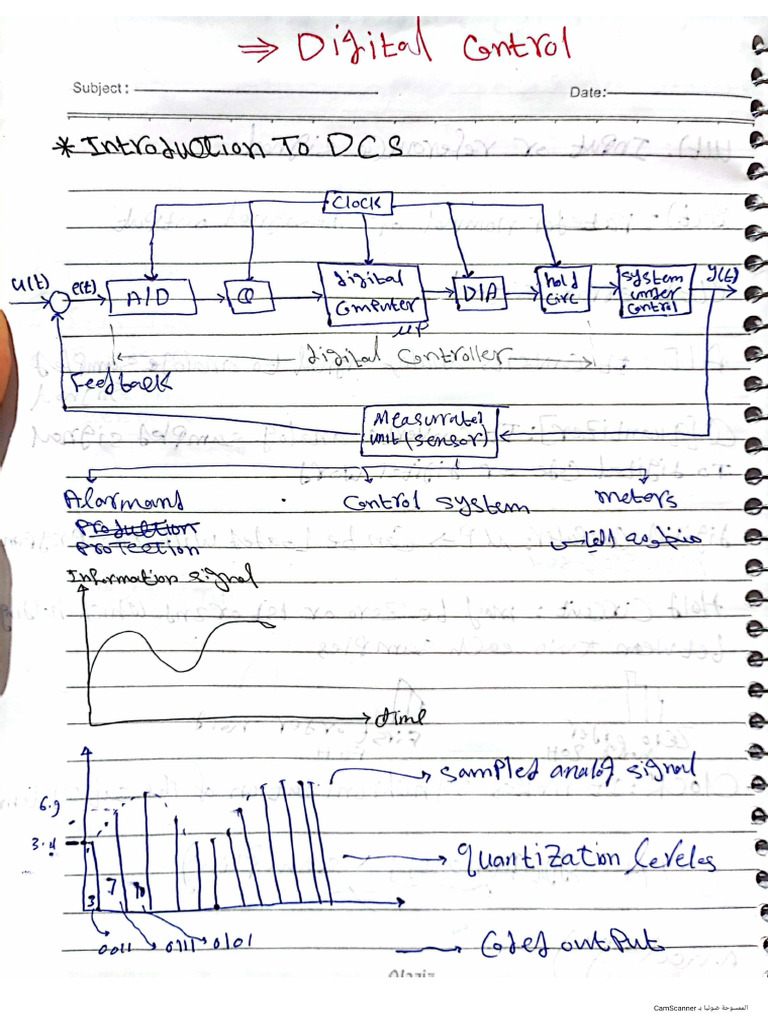 ⇒ Digital Control
Subject: Date:
* Introduction To DCS
Clock
u(t) e(t) A/D Q digital Computer D/A hold Circ system under Control y(t)
μP
digital Controller
Feedback
Measurated unit (sensor)
Alarm and Control system meters
Production
Protection منظومة القياس
Information signal
time
sampled analog signal
6.9
3.4
quantization leveles
3 7
0011 0111 0101
Coded output
الممسوحة ضوئيا بـ CamScanner